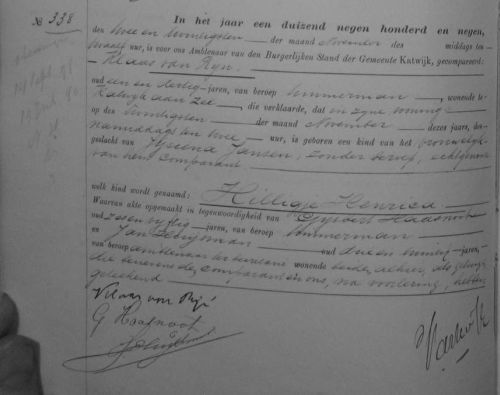 № 338
In het jaar een duizend negen honderd en negen,
den twee en twintigsten der maand November des middags ten
twaalf uur, is voor ons Ambtenaar van den Burgerlijken Stand der Gemeente Katwijk, gecompareerd:
Klaas van Rijn
oud een en dertig jaren, van beroep timmerman, wonende te
Katwijk aan Zee, die verklaarde, dat in zijne woning
op den twintigsten der maand November dezes jaars, des
namiddags ten twee uur, is geboren een kind van het vrouwelijk
geslacht van Jansen, zonder beroep, echtgenoote
van hem comparant
welk kind wordt genaamd: Hilligje Henrica
Waarvan akte opgemaakt in tegenwoordigheid van Gijsbert Haasnoot
oud zes en vijftig jaren, van beroep timmerman
en Jan oud en jaren,
van beroep ambtenaar ter secretarie wonende beide alhier, als getuigen
die benevens de comparant en ons, na voorlezing, hebben
geteekend
Klaas van Rijn
G Haasnoot